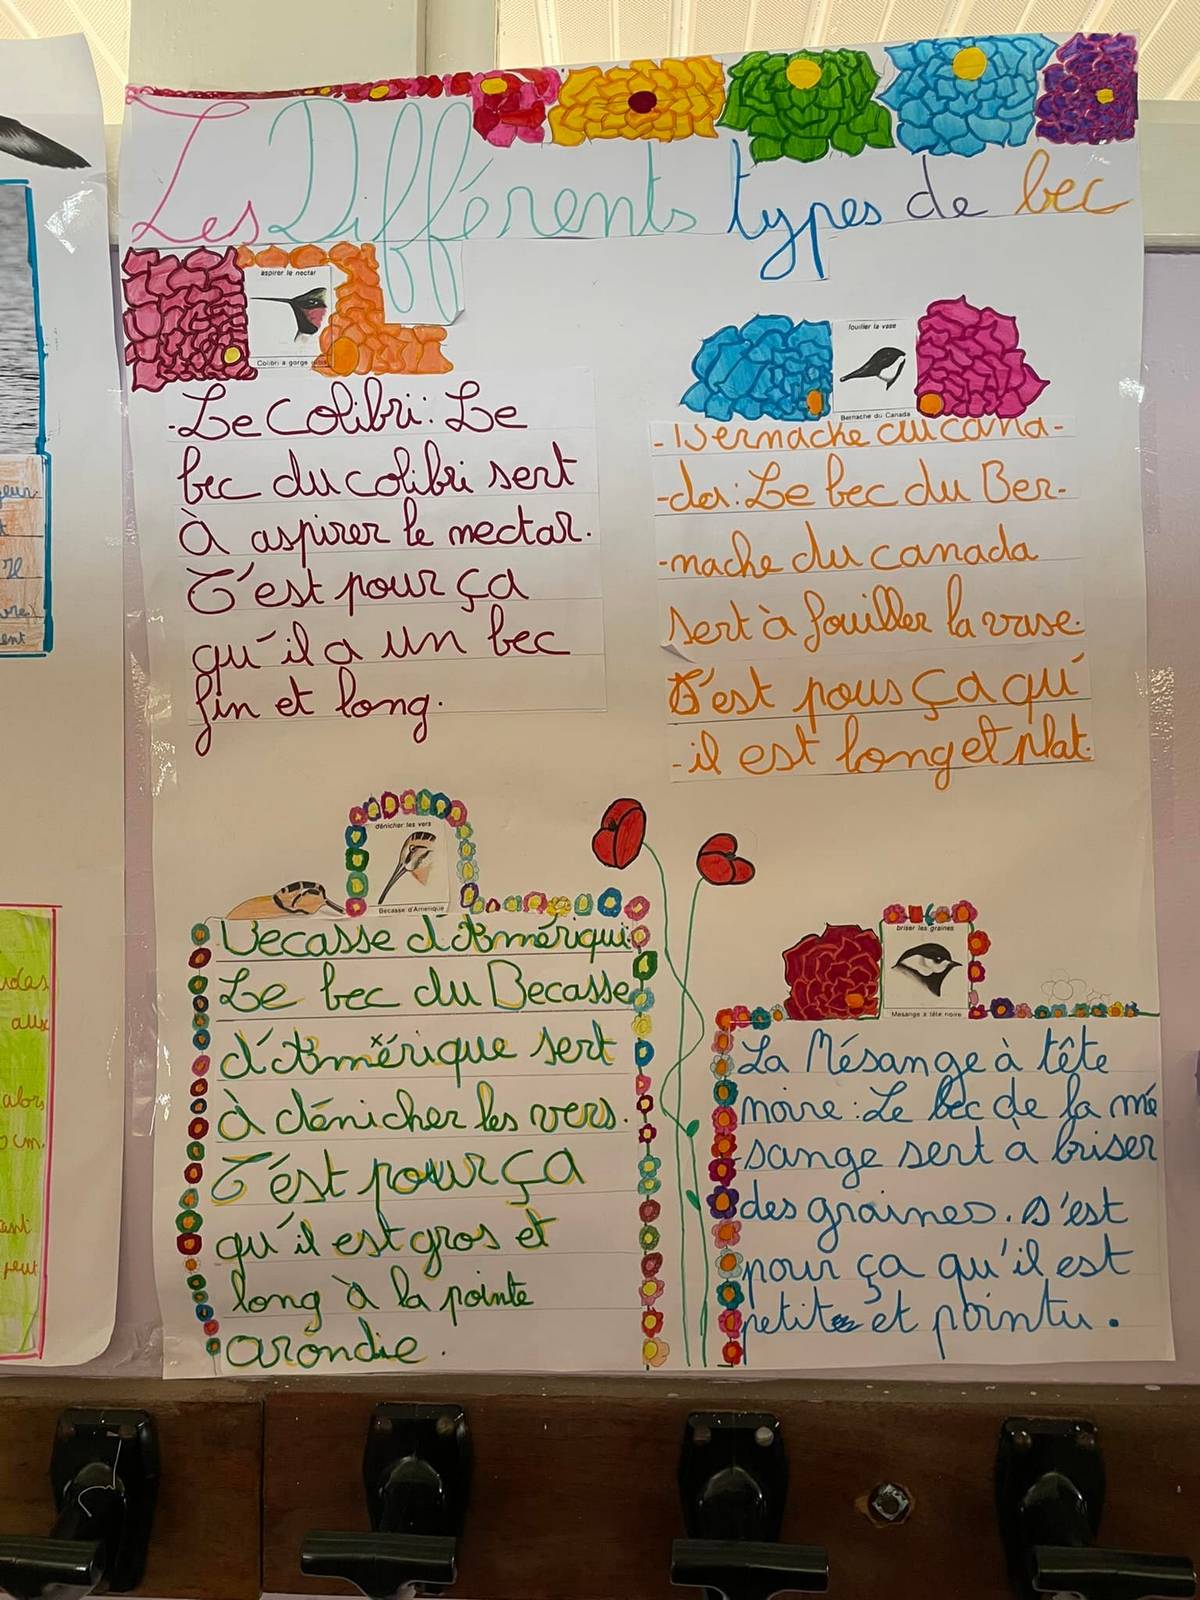 Les Différents types de bec
aspirer le nectar
Colibri à gorge
- Le Colibri : Le
bec du colibri sert
À aspirer le nectar.
C'est pour ça
qu'il a un bec
fin et long.
fouiller la vase
Bernache du Canada
- Bernache du cana-
-da : Le bec du Ber-
-nache du canada
sert à fouiller la vase.
C'est pous ça qu'
-il est long et plat.
dénicher les vers
Bécasse d'Amérique
Becasse d'Amérique
Le bec du Becasse
d'Amérique sert
à dénicher les vers.
C'ést pour ça
qu'il est gros et
long à la pointe
arondie.
briser les graines
Mésange à tête noire
La Mésange à tête
noire : Le bec de la mé
-sange sert à briser
des graines. s'est
pour ça qu'il est
petit et pointu.
aux
alors
cm.
peut
ent